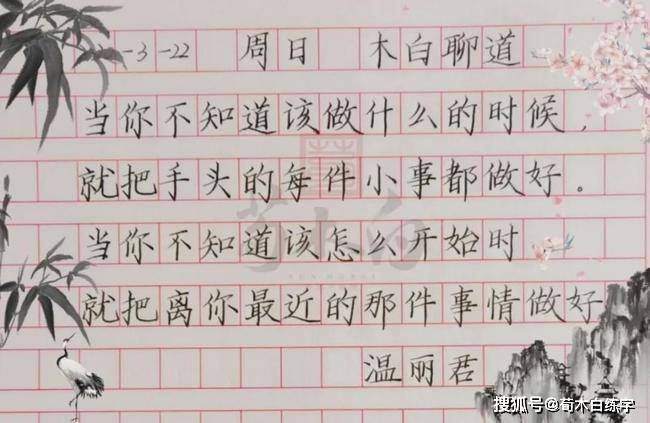 -3-22 周日 木白聊道
当你不知道该做什么的时候，
就把手头的每件小事都做好。
当你不知道该怎么开始时
就把离你最近的那件事情做好
温丽君
荀木白
搜狐号@荀木白练字